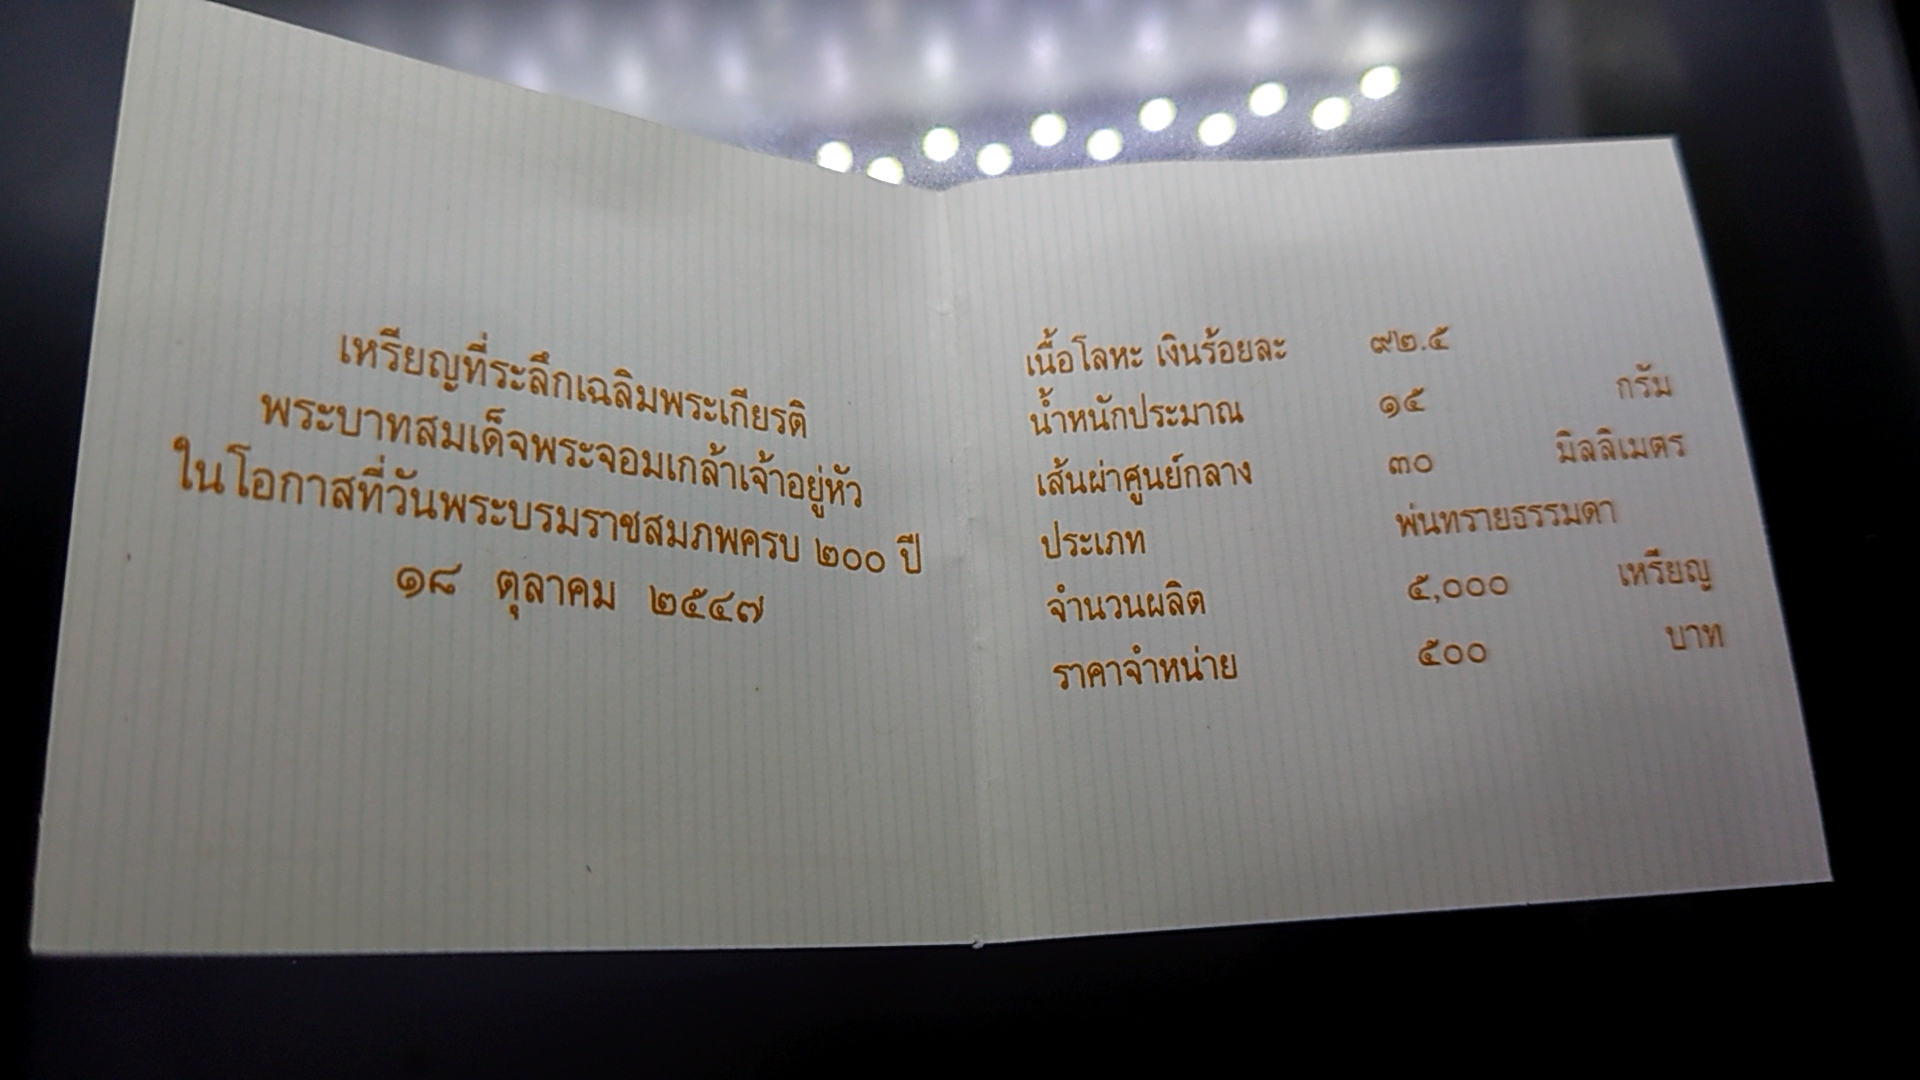 เหรียญที่ระลึกเฉลิมพระเกียรติ
พระบาทสมเด็จพระจอมเกล้าเจ้าอยู่หัว
ในโอกาสที่วันพระบรมราชสมภพครบ ๒๐๐ ปี
๑๘ ตุลาคม ๒๕๔๗
เนื้อโลหะ เงินร้อยละ ๙๒.๕
น้ำหนักประมาณ ๑๕ กรัม
เส้นผ่าศูนย์กลาง ๓๐ มิลลิเมตร
ประเภท พ่นทรายธรรมดา
จำนวนผลิต ๕,๐๐๐ เหรียญ
ราคาจำหน่าย ๕๐๐ บาท